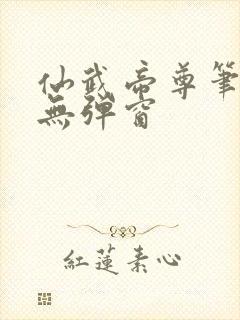 仙武帝尊筆
無彈窗
紅蓮素心